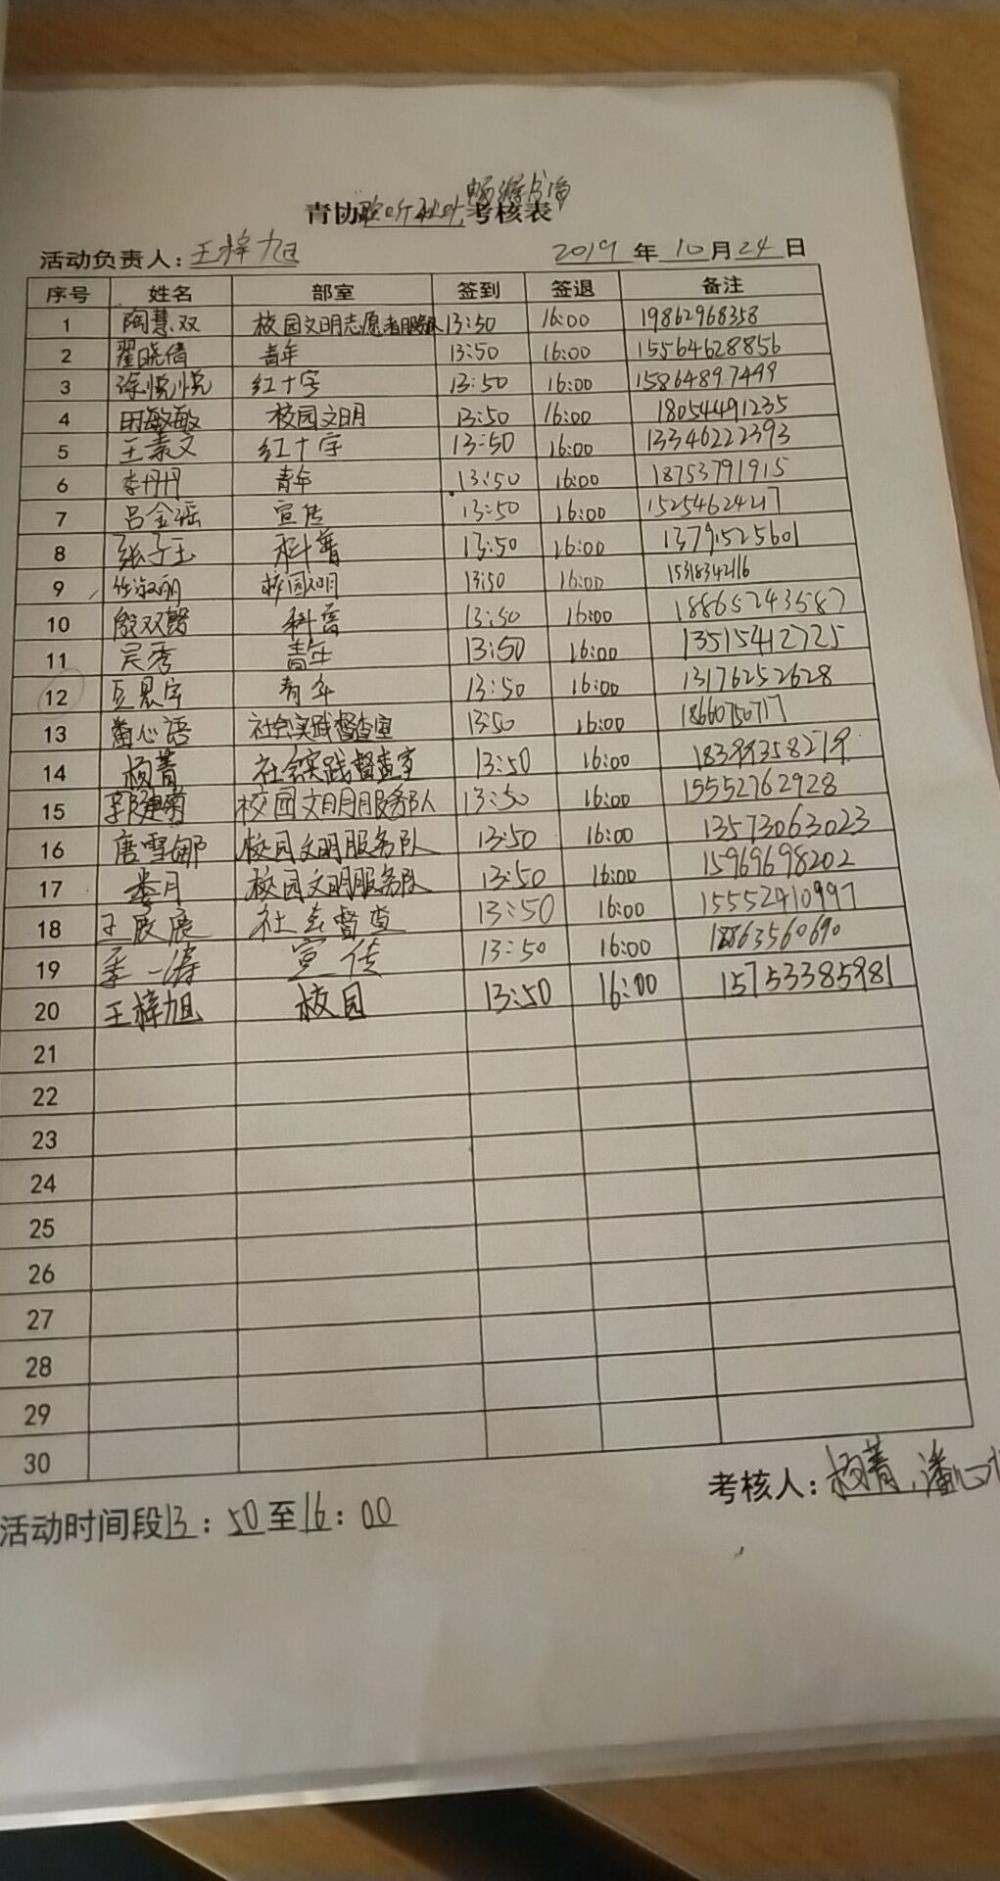 畅游书海
青协聆听秋叶,考核表
活动负责人：王梓旭 2019年10月24日
序号 姓名 部室 签到 签退 备注
1 陶慧双 校园文明志愿者服务队 13:50 16:00 19862968358
2 翟晓倩 青年 13:50 16:00 15564628856
3 徐悦悦 红十字 13:50 16:00 15864897499
4 田敏敏 校园文明 13:50 16:00 18054491235
5 王素文 红十字 13:50 16:00 13346222393
6 李丹丹 青年 13:50 16:00 18753791915
7 吕金瑶 宣传 13:50 16:00 15254624217
8 张子玉 科普 13:50 16:00 13791525601
9 任淑明 校园文明 13:50 16:00 15318342116
10 殷双馨 科普 13:50 16:00 18865243587
11 吴秀 青年 13:50 16:00 13515412725
12 亓恩宇 青年 13:50 16:00 13176252628
13 萧心语 社会实践督查室 13:50 16:00 18660750717
14 杨菁 社会实践督查室 13:50 16:00 18399358219
15 郭建菊 校园文明服务队 13:50 16:00 15552762928
16 唐雪娜 校园文明服务队 13:50 16:00 13573063023
17 娄月 校园文明服务队 13:50 16:00 15969698202
18 王展展 社会督查 13:50 16:00 15552410997
19 季一涛 宣传 13:50 16:00 18863560690
20 王梓旭 校园 13:50 16:00 15753385981
21
22
23
24
25
26
27
28
29
30
考核人：杨菁、潘心
活动时间段13：50至16：00